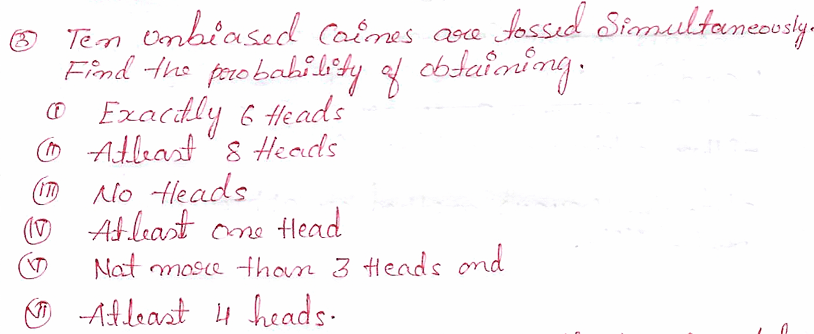 ③ Ten unbiased Coines are tossed Simultaneously.
Find the probability of obtaining.
① Exactly 6 Heads
② Atleast 8 Heads
③ No Heads
④ Atleast one Head
⑤ Not more than 3 Heads and
⑥ Atleast 4 heads.